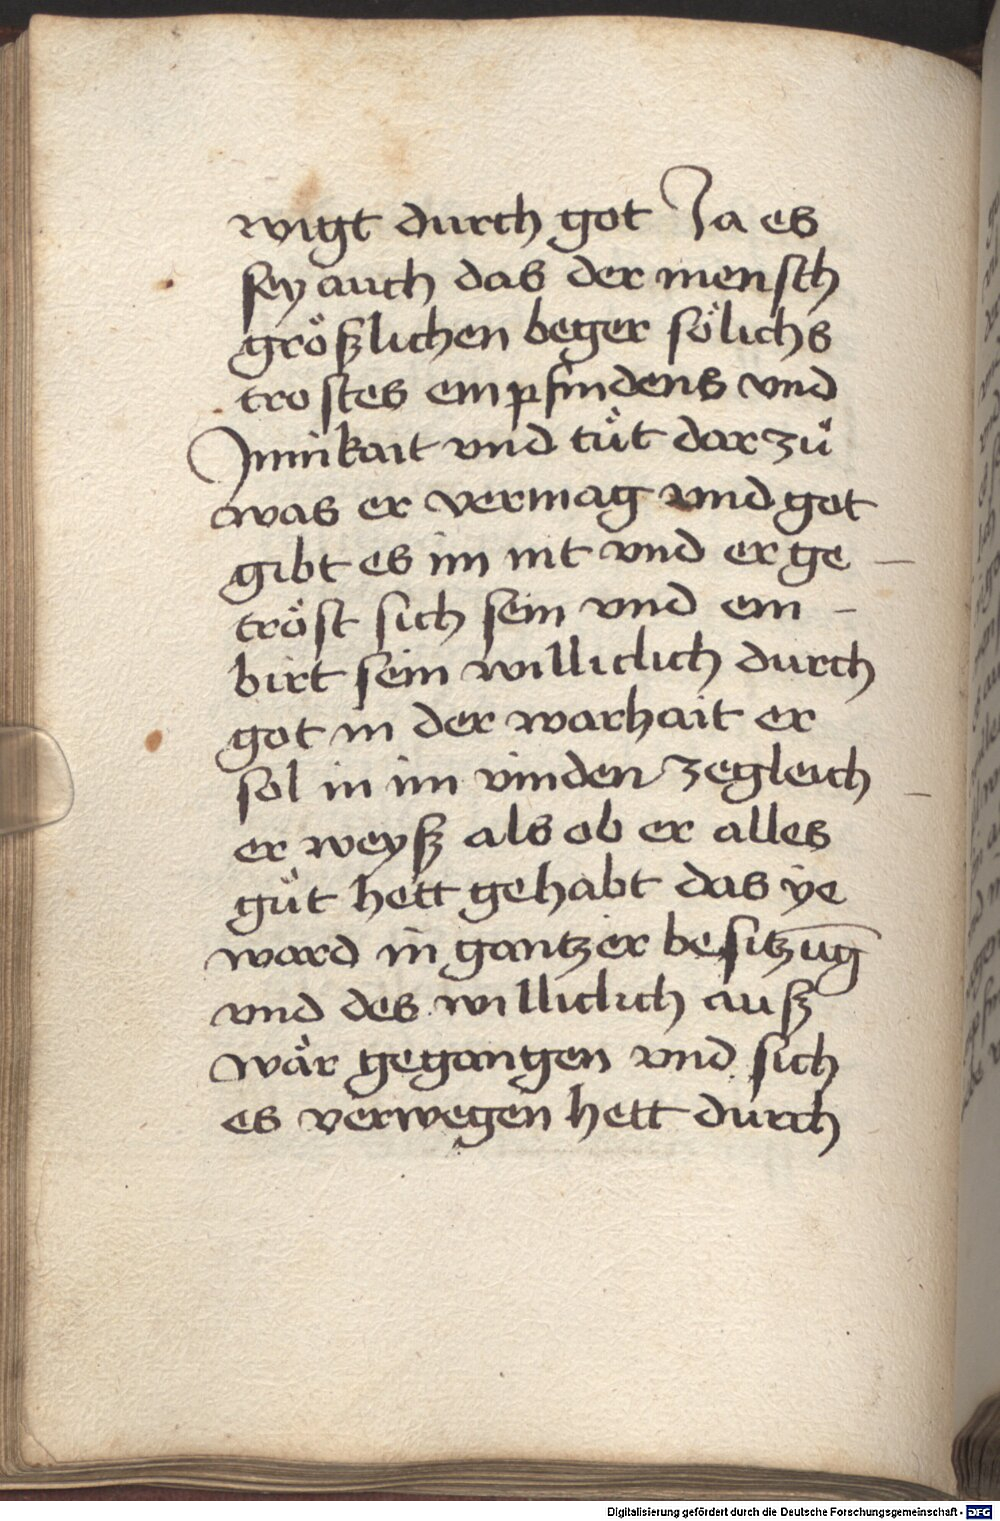 wigt durch got Ja es
sey auch das der mensch
größlichen beger sölichs
trostes empfindens vnd
Jnnikait vnd tůt dar zů
was er vermag vnd got
gibt es im nit vnd er ge
tröst sich sein vnd em –
birt sein williclich durch
got in der warhait er
sol in im vinden zegleich
er weyß als ob er alles
gůt hett gehabt das ye
ward in gantzer besitzūg
vnd des williclich auß
wär gegangen vnd sich
es verwegen hett durch
Digitalisierung gefördert durch die Deutsche Forschungsgemeinschaft - DFG